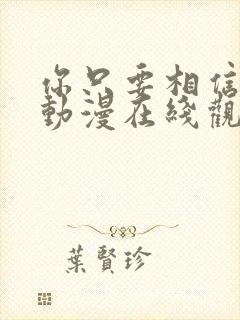 你只要相信
動漫在綫觀
葉賢珍